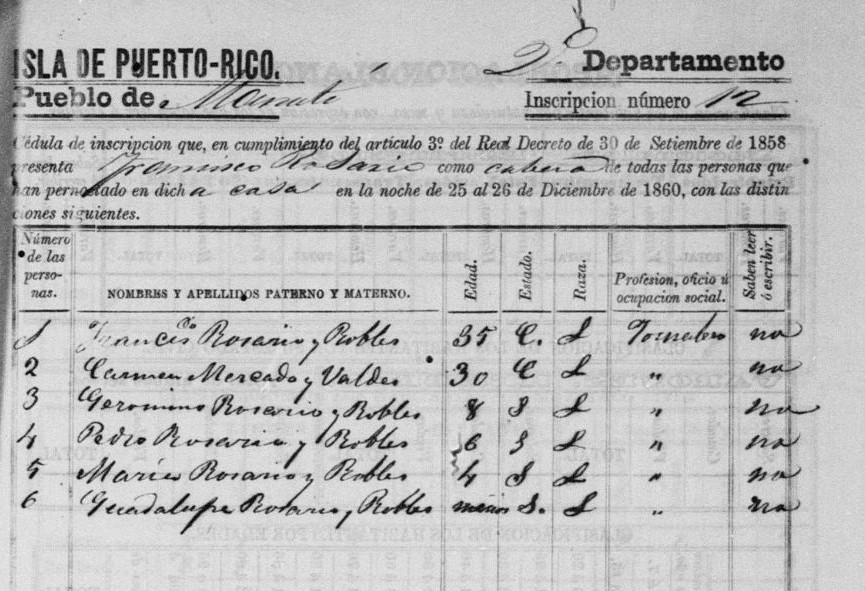 ISLA DE PUERTO-RICO. 2º Departamento
Pueblo de Manatí Inscripcion número 12
Cédula de inscripcion que, en cumplimiento del artículo 3º del Real Decreto de 30 de Setiembre de 1858
presenta Francisco Rosario como cabeza de todas las personas que
han pernoctado en dicha casa en la noche de 25 al 26 de Diciembre de 1860, con las distin
ciones siguientes.
Número de las perso- nas. NOMBRES Y APELLIDOS PATERNO Y MATERNO. Edad. Estado. Raza. Profesion, oficio ú ocupacion social. Saben leer ó escribir.
1 Francisco Rosario y Robles 35 C. no
2 Carmen Mercado y Valdes 30 C " no
3 Geronimo Rosario y Robles 8 S " no
4 Pedro Rosario y Robles 6 S " no
5 María Rosario y Robles 4 S " no
6 Guadalupe Rosario y Robles menos S. " no